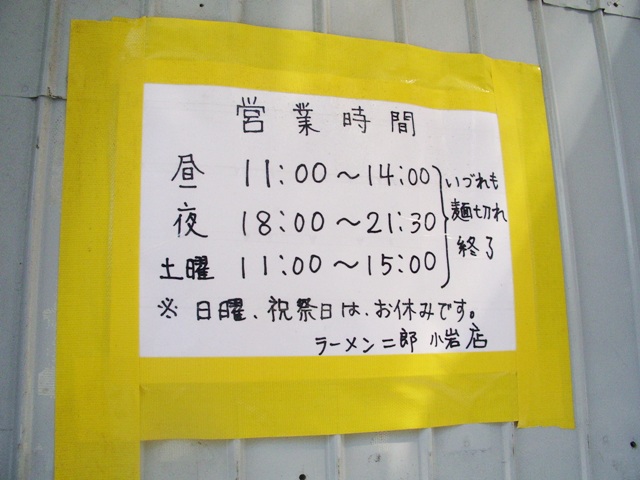 営業時間
昼 11:00〜14:00
夜 18:00〜21:30
土曜 11:00〜15:00
いづれも
麺切れ
終了
※日曜、祝祭日は、お休みです。
ラーメン二郎 小岩店